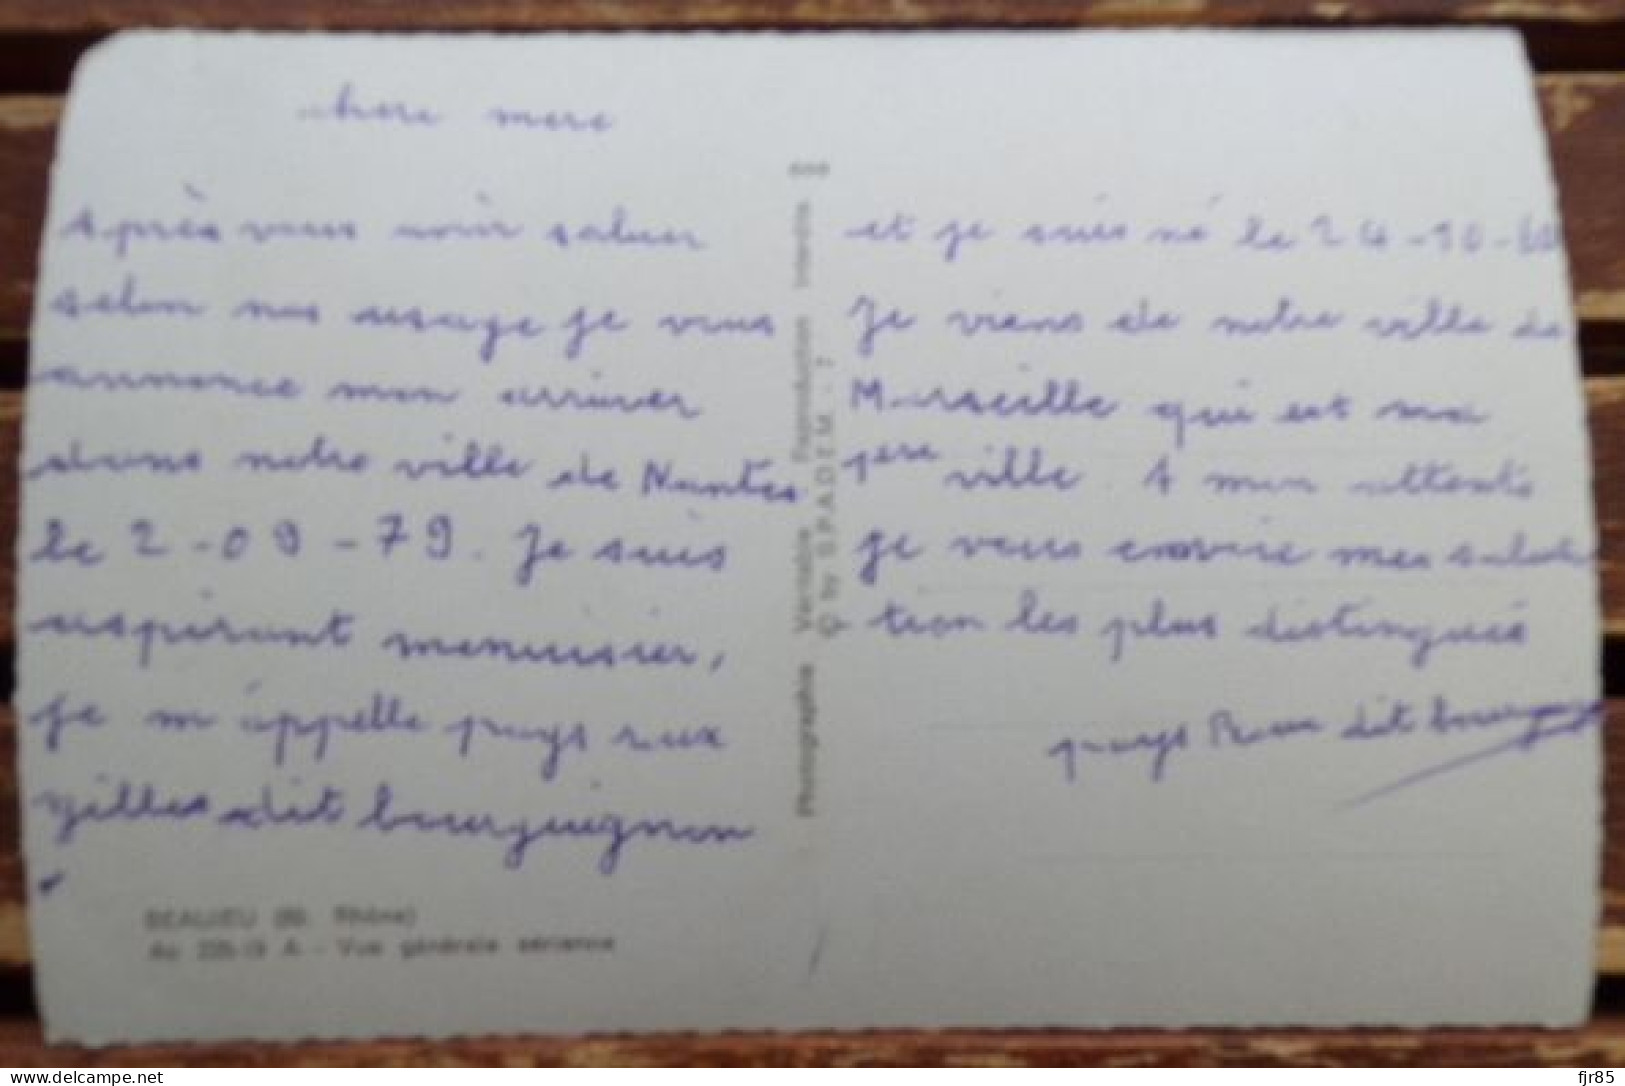 chere mere
Après vous avoir saluer
selon nos usage je vous
annonce mon arriver
dans notre ville de Nantes
le 2-09-79. Je suis
aspirant menuisier,
je m'appelle pays
gilles dit bourguignon
BEAUJEU (69. Rhône)
A - Vue générale aérienne
Photographie Véritable Reproduction Interdite
© by S.P.A.D.E.M. - 7
et je suis né le 24-10-60
Je viens de notre ville de
Marseille qui est ma
1ère ville. A mon attente
je vous envoie mes
tion les plus distingués
pays dit bourguignon
delcampe.net
fjr85